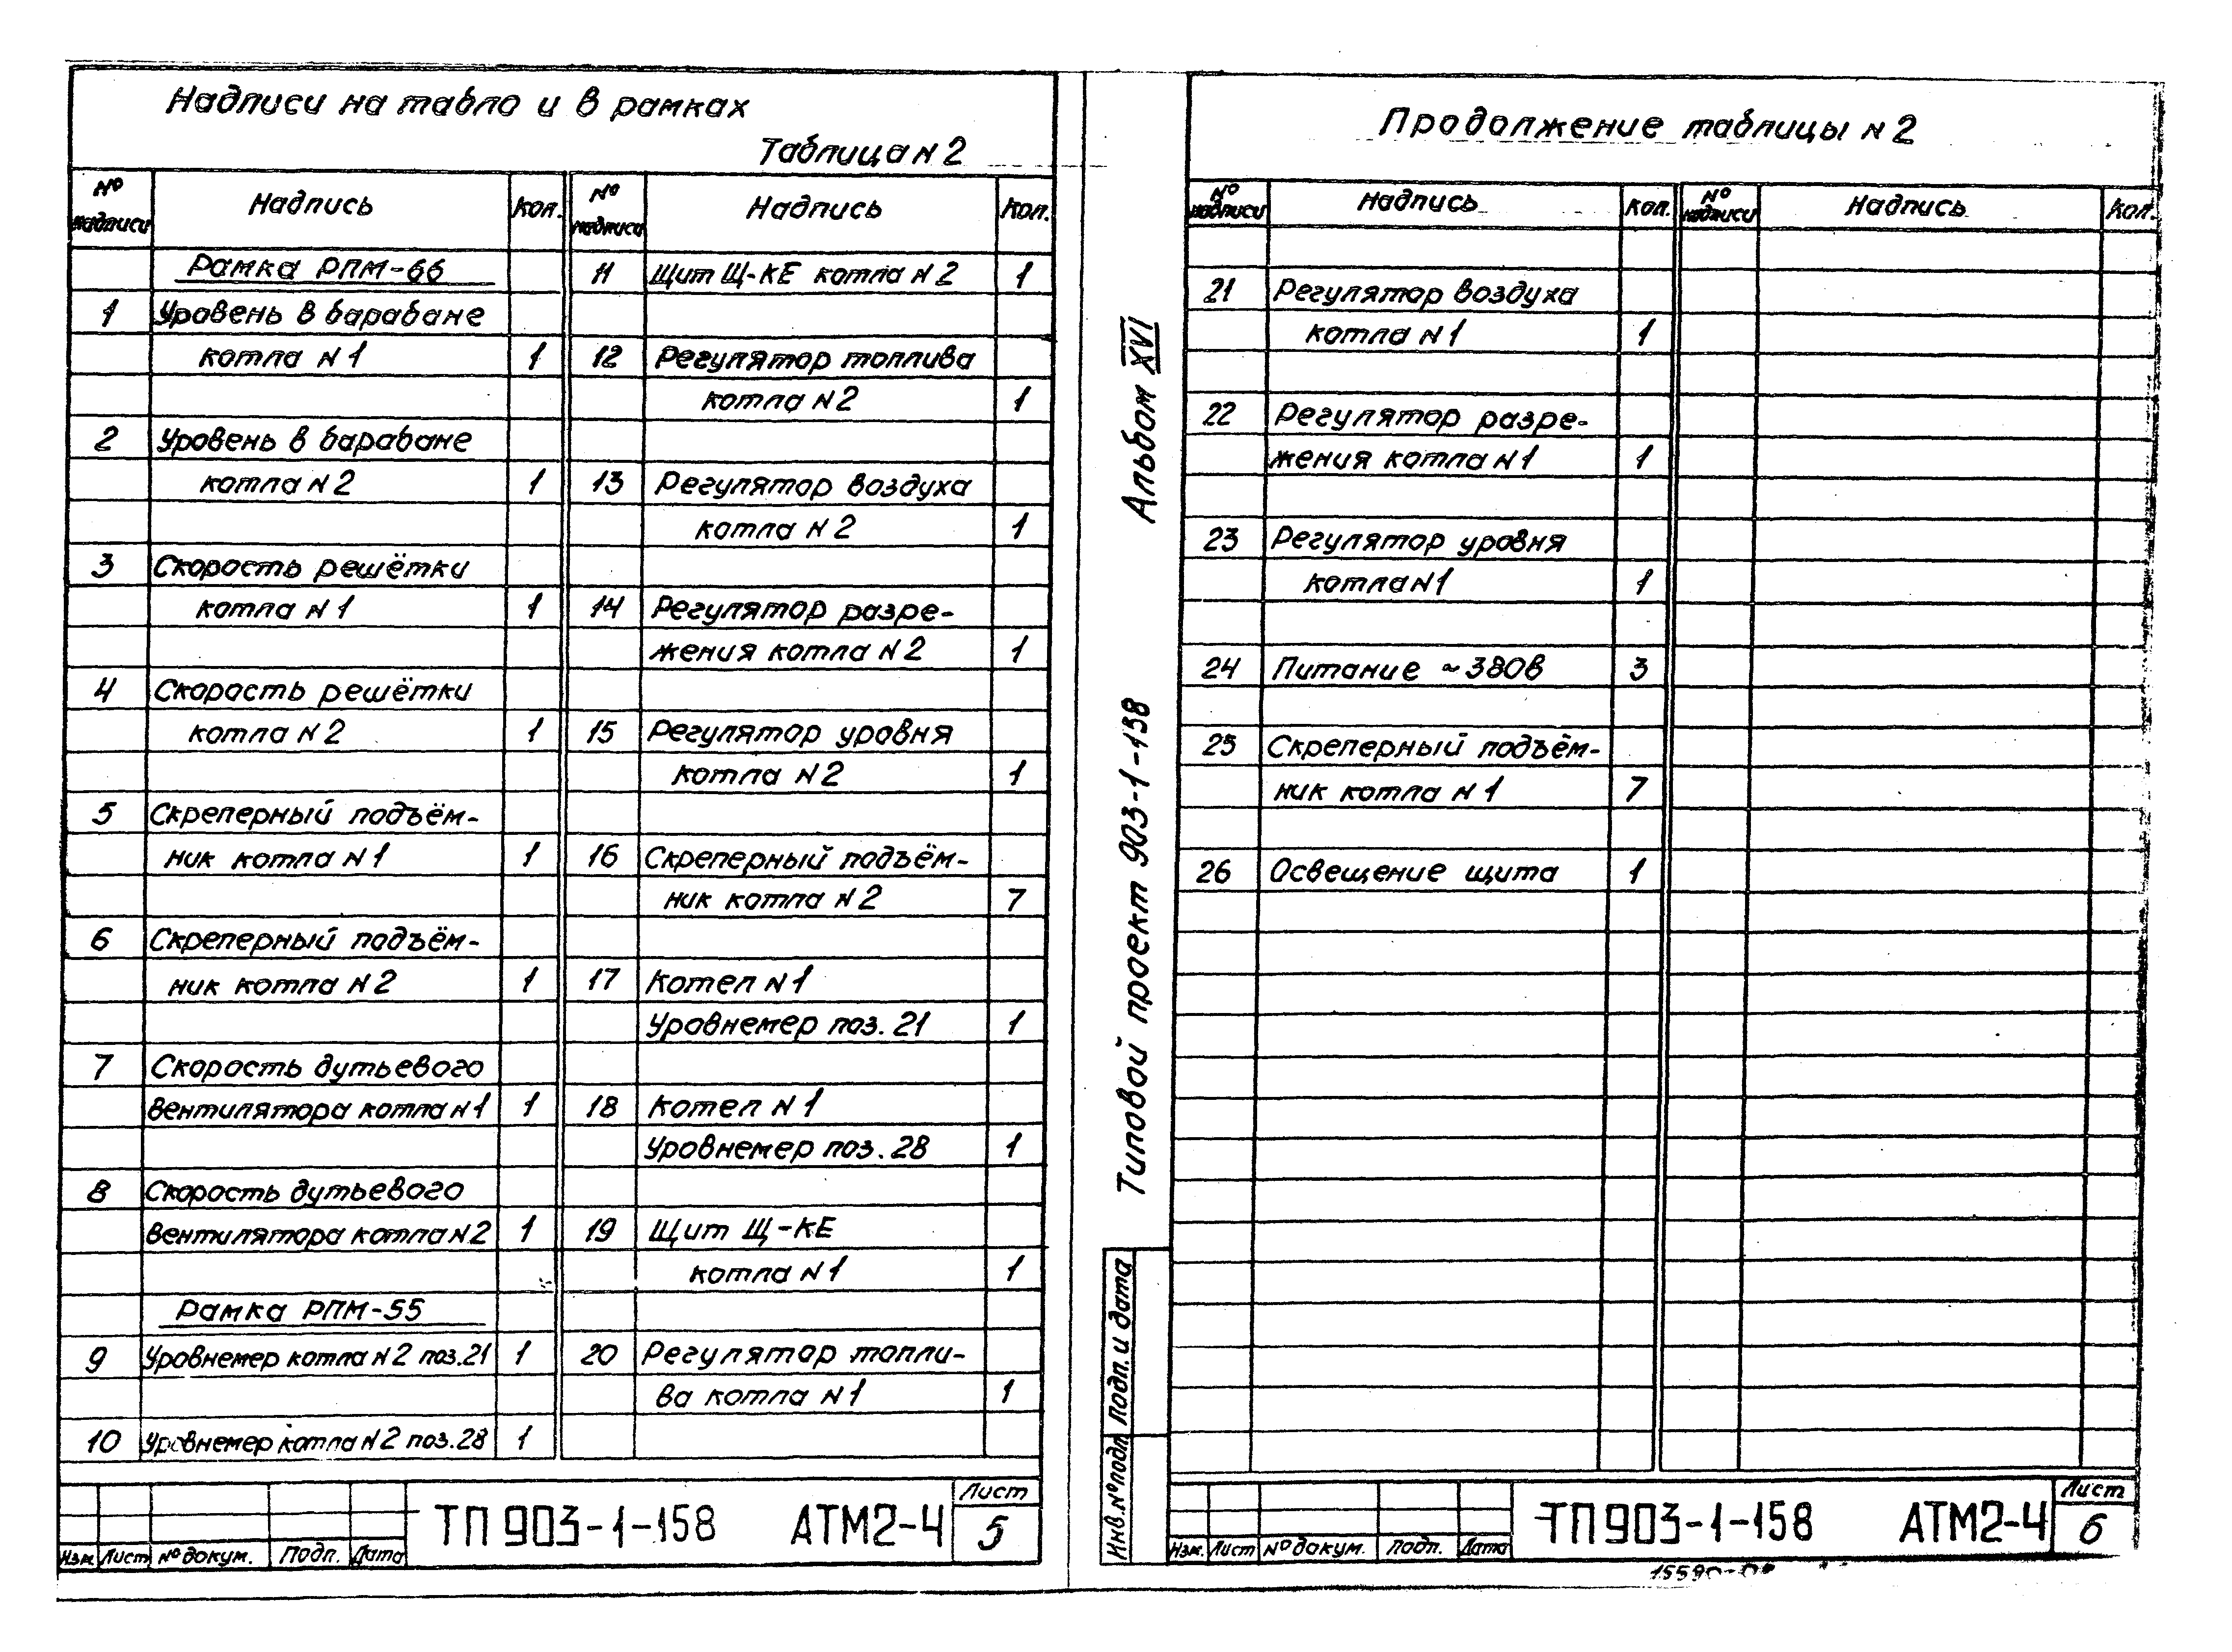 Надписи на табло и в рамках
Таблица N 2
№ надписи Надпись Кол. № надписи Надпись Кол.
Рамка РПМ-66
1 Уровень в барабане
котла N 1 1
2 Уровень в барабане
котла N 2 1
3 Скорость решётки
котла N 1 1
4 Скорость решётки
котла N 2 1
5 Скреперный подъём-
ник котла N 1 1
6 Скреперный подъём-
ник котла N 2 1
7 Скорость дутьевого
вентилятора котла N 1 1
8 Скорость дутьевого
вентилятора котла N 2 1
Рамка РПМ-55
9 Уровнемер котла N 2 поз.21 1
10 Уровнемер котла N 2 поз.28 1
11 Щит Щ-КЕ котла N 2 1
12 Регулятор топлива
котла N 2 1
13 Регулятор воздуха
котла N 2 1
14 Регулятор разре-
жения котла N 2 1
15 Регулятор уровня
котла N 2 1
16 Скреперный подъём-
ник котла N 2 7
17 Котел N 1
Уровнемер поз. 21 1
18 Котел N 1
Уровнемер поз. 28 1
19 Щит Щ-КЕ
котла N 1 1
20 Регулятор топли-
ва котла N 1 1
Изм. Лист № докум. Подп. Дата
ТП 903-1-158 АТМ2-4
Лист
5
Альбом XVI
Типовой проект 903-1-158
Подп. и дата
Инв. № подл
Продолжение таблицы N 2
№ надписи Надпись Кол. № надписи Надпись Кол.
21 Регулятор воздуха
котла N 1 1
22 Регулятор разре-
жения котла N 1 1
23 Регулятор уровня
котла N 1 1
24 Питание ~380в 3
25 Скреперный подъём-
ник котла N 1 7
26 Освещение щита 1
Изм. Лист № докум. Подп. Дата
ТП 903-1-158 АТМ2-4
Лист
6